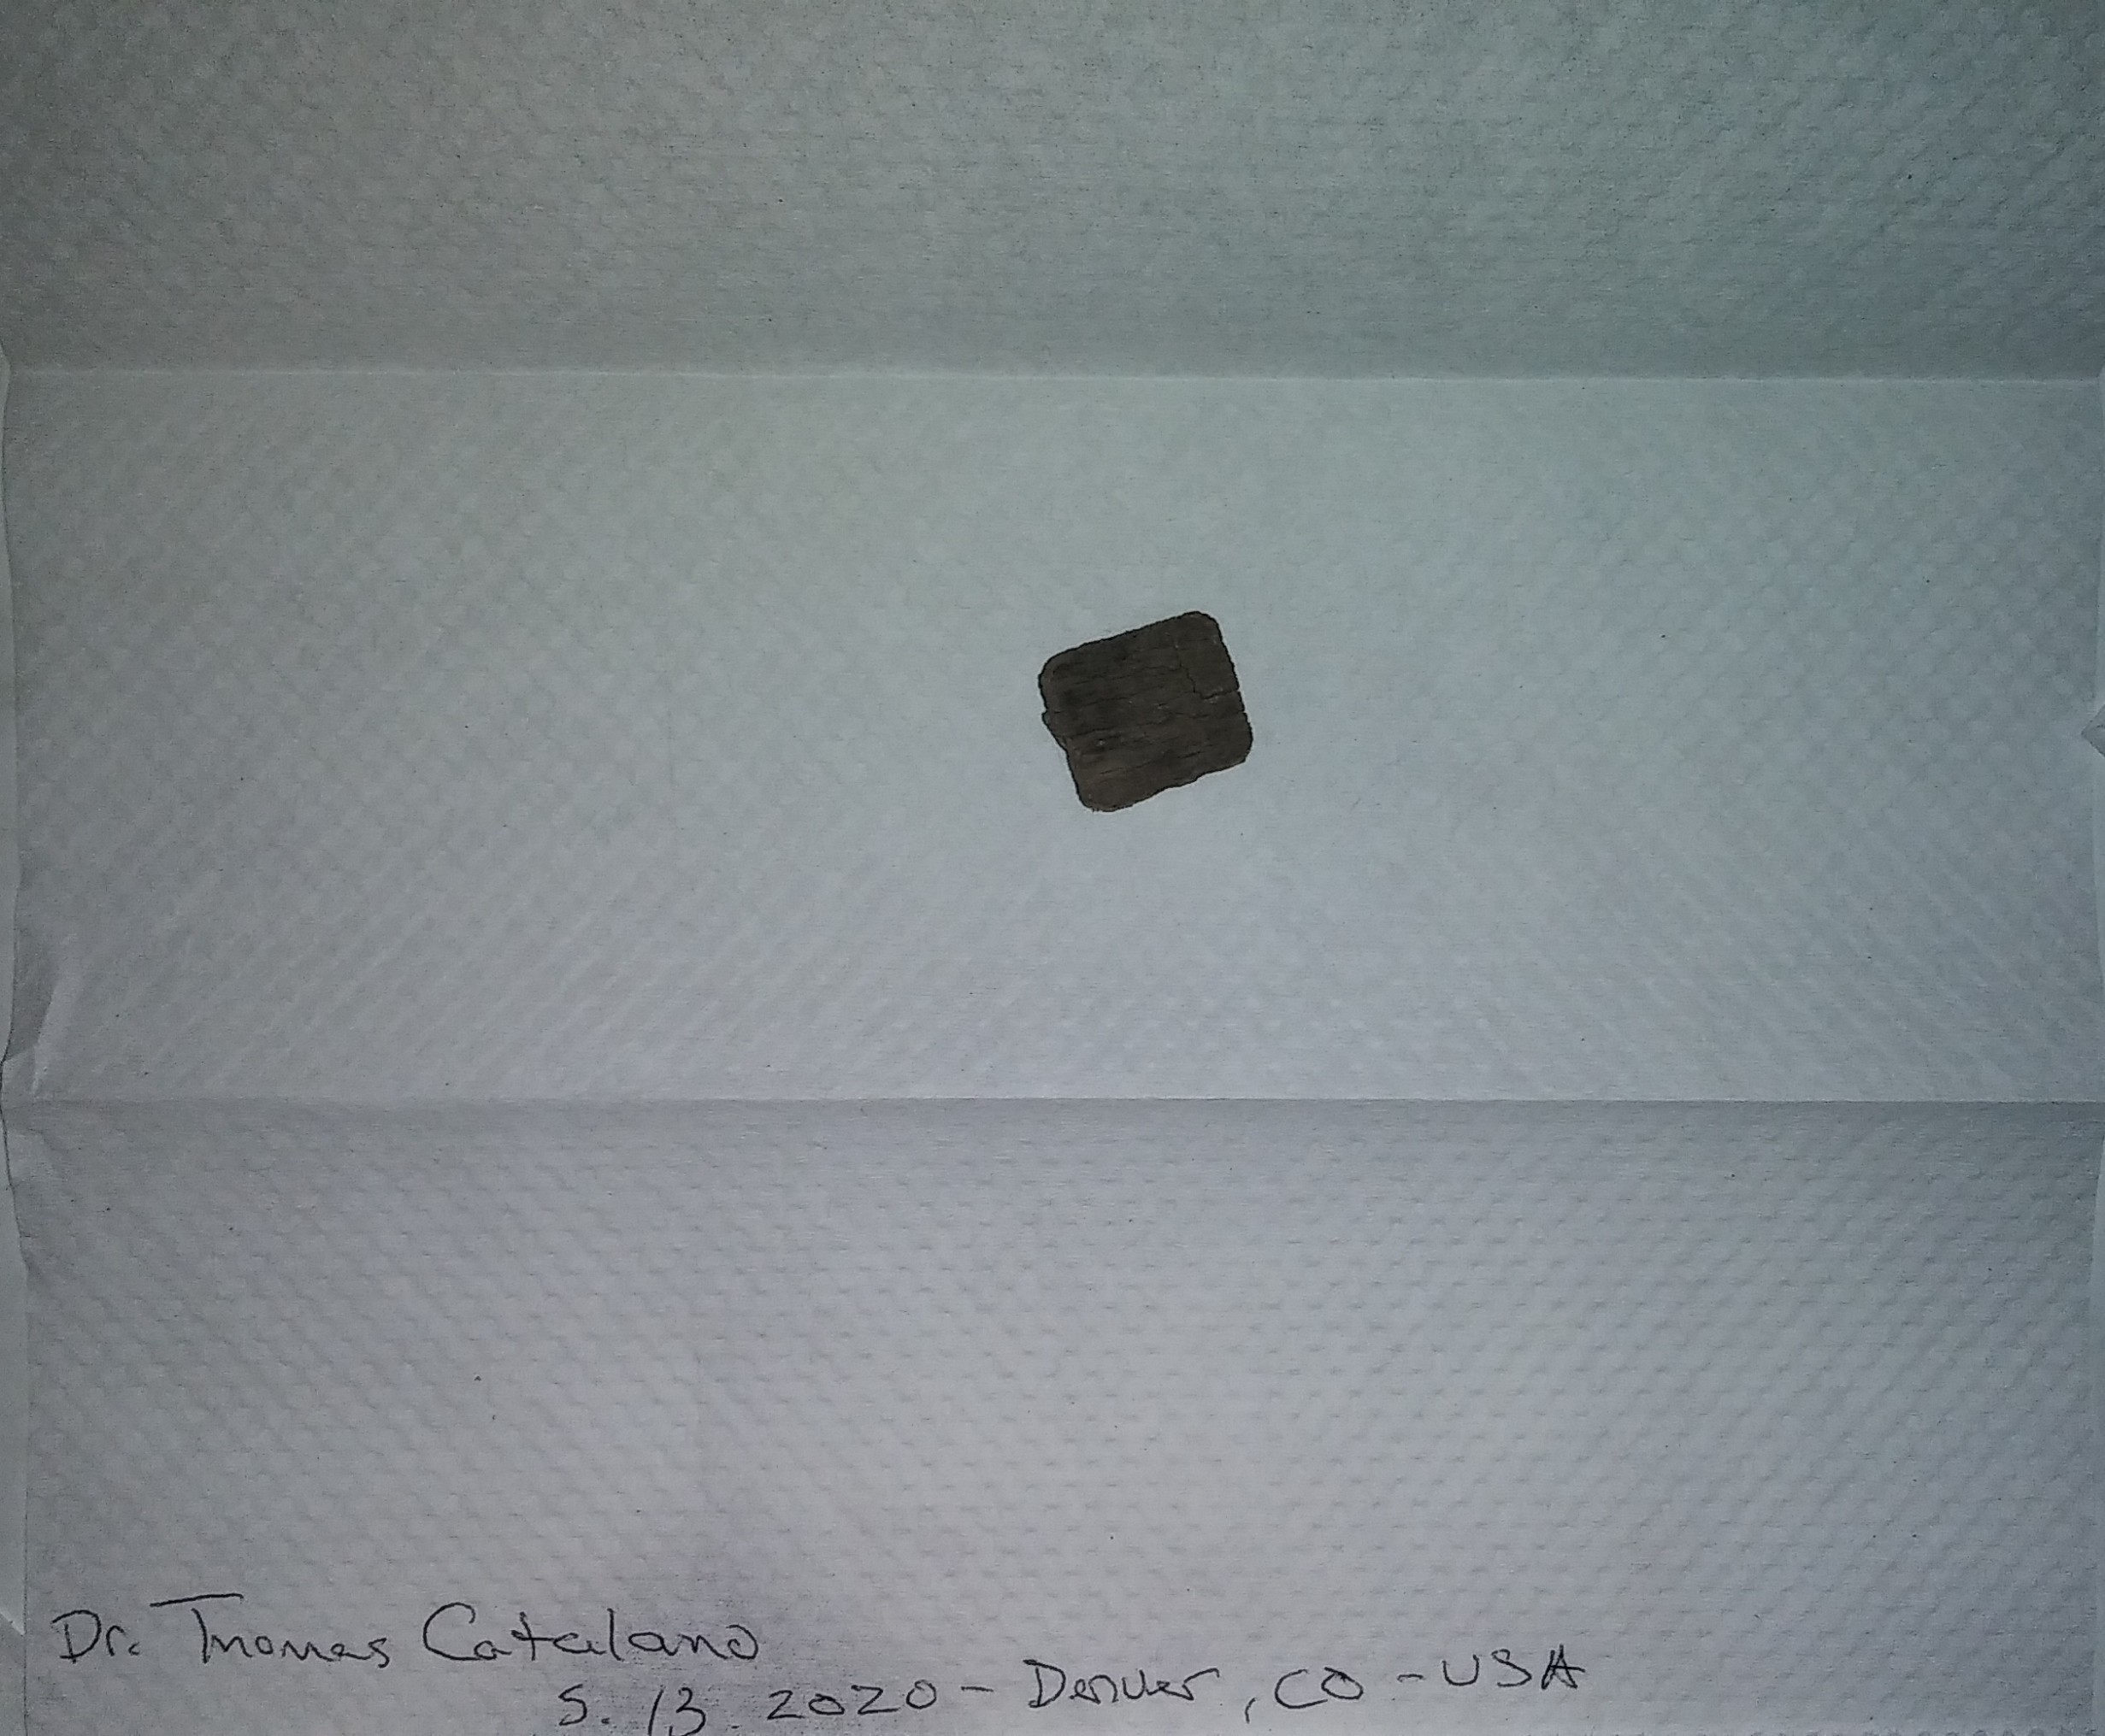 Dr. Thomas Catalano
5. 13. 2020 - Denver, CO - USA